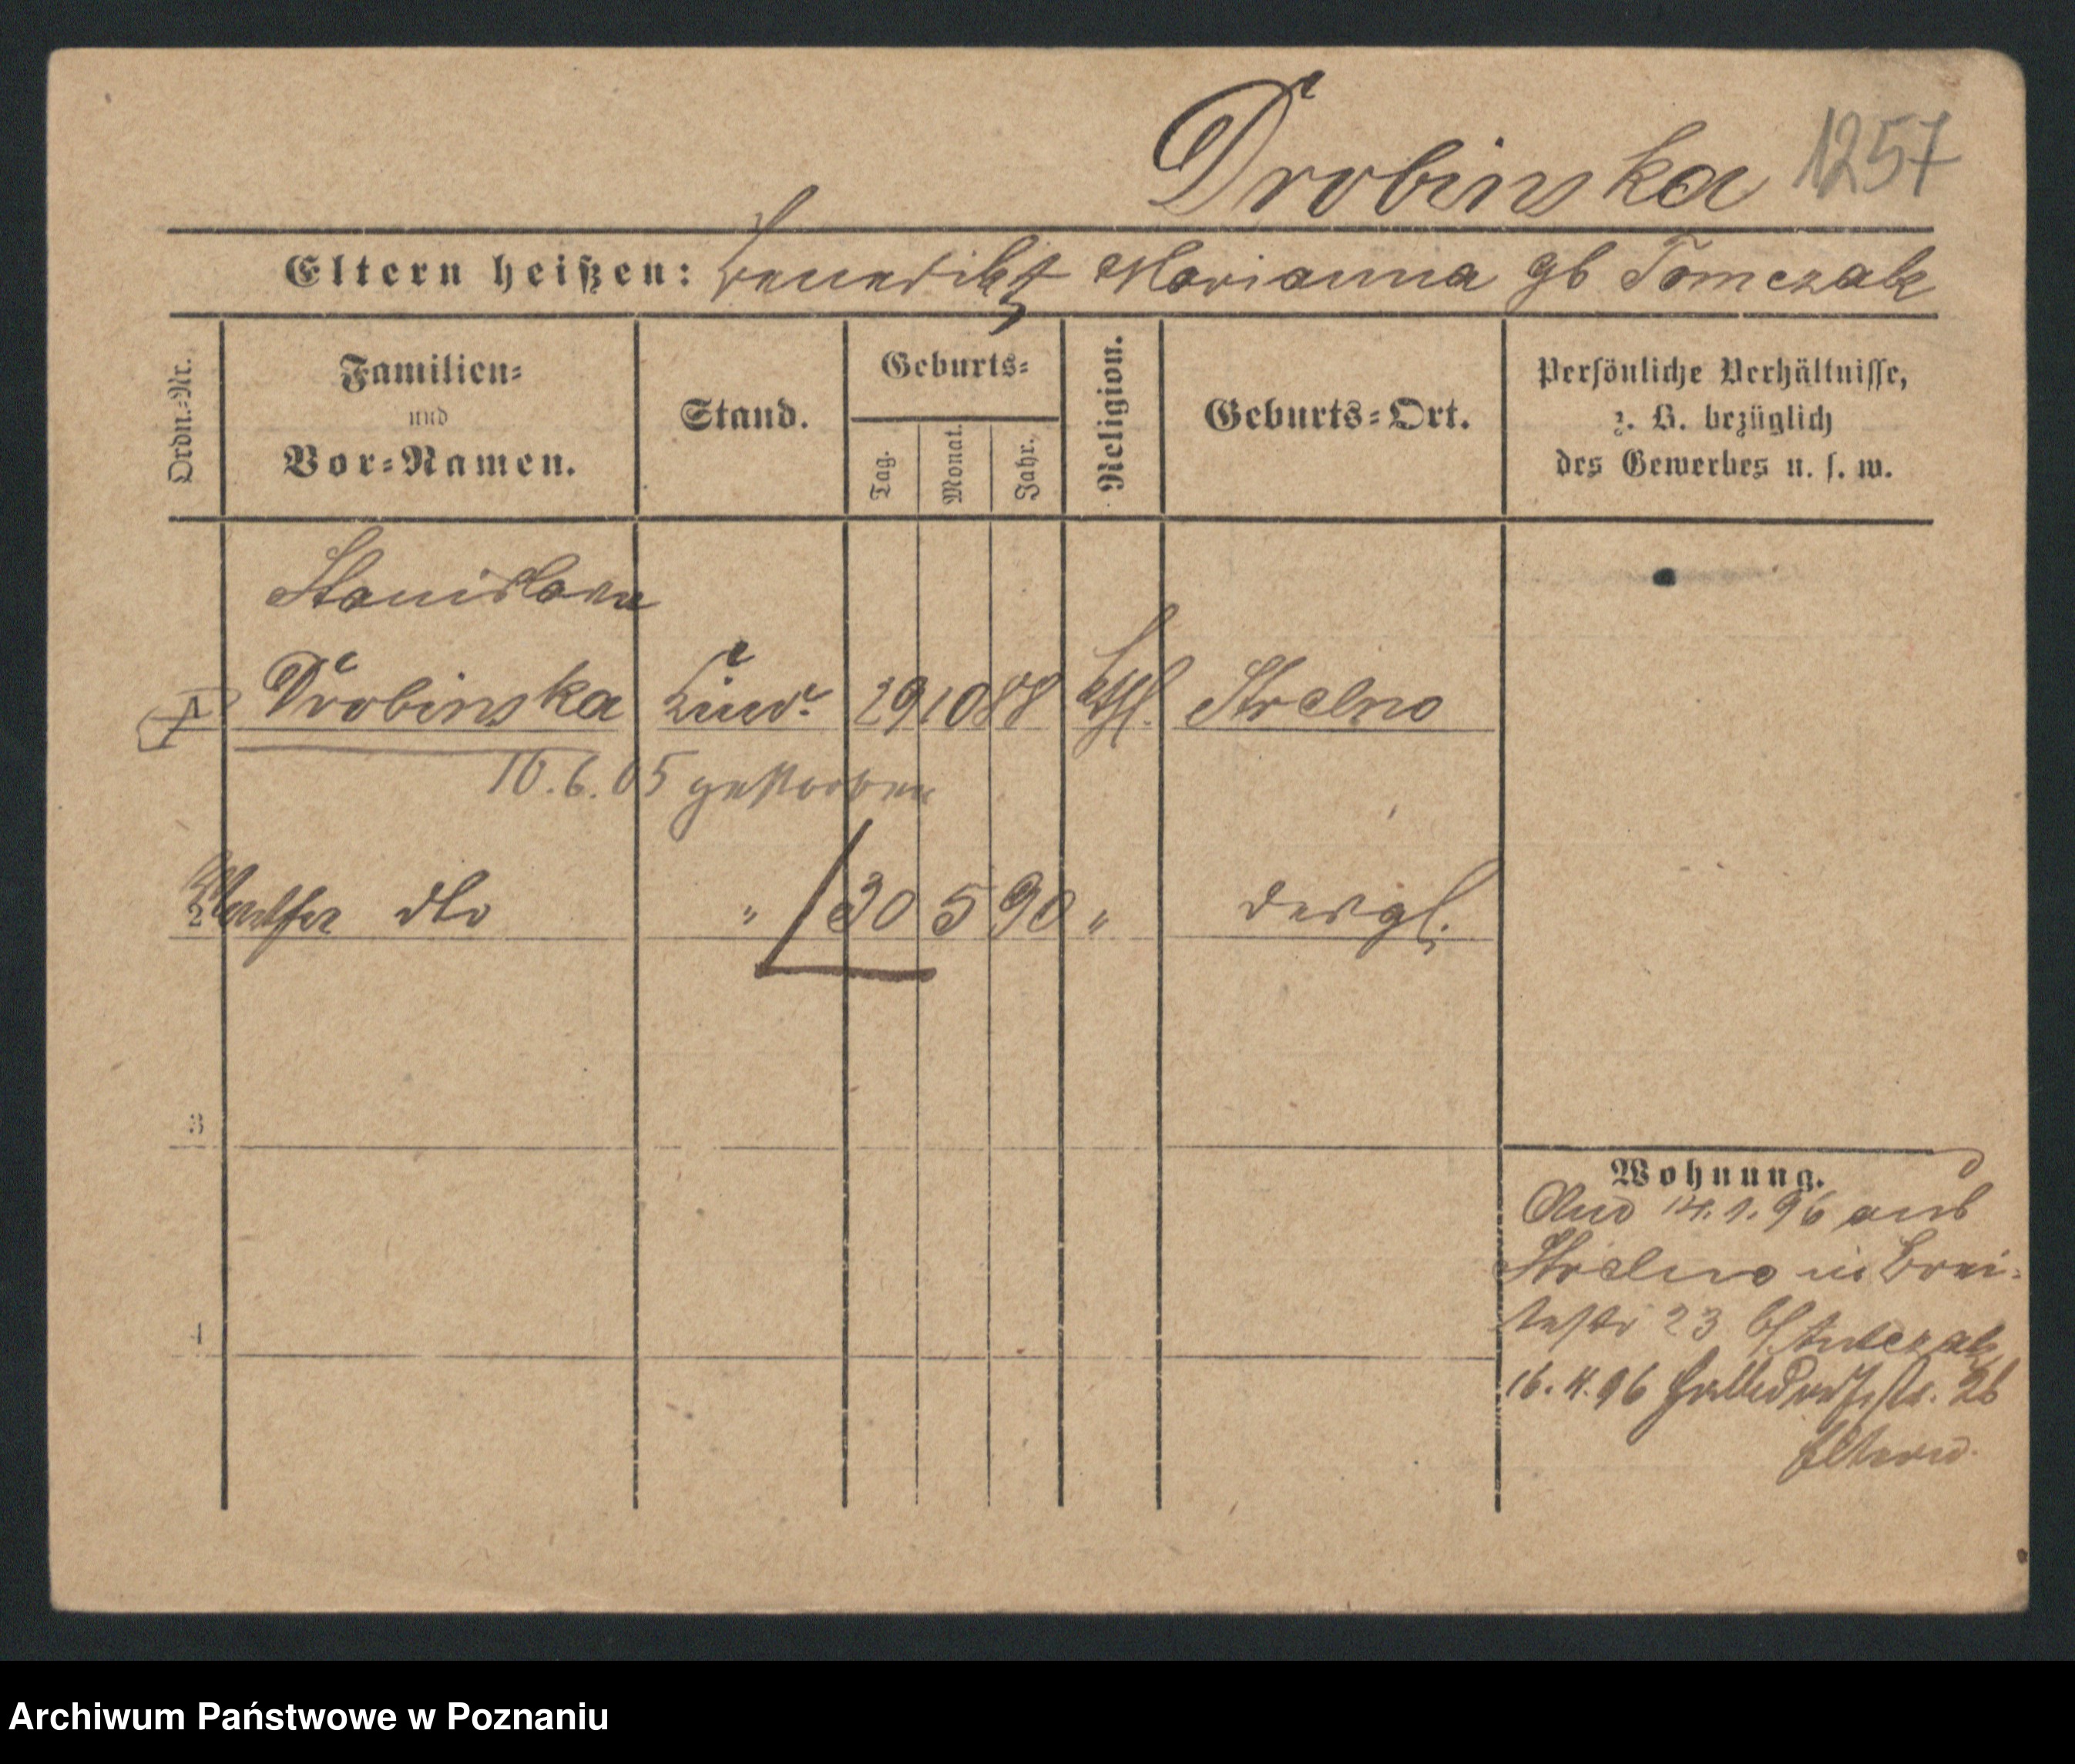 Drobinska 1257
Eltern heißen: Benedikt Marianna gb Tomczak
Ordn.-Nr.
Familien-
und
Vor-Namen.
Stand.
Geburts-
Tag.
Monat.
Jahr.
Religion.
Geburts-Ort.
Persönliche Verhältnisse,
z. B. bezüglich
des Gewerbes u. s. w.
Stanislawa
Drobinska Kind 29 10 88 kth. Strelno
10.6.05 gestorben
2 dto " 30 5 90 " desgl.
3
Wohnung.
And 14.1.96 aus
Strelno in Brei-
testr 23 b/
16. 4. 96 26
Eltern.
4
Archiwum Państwowe w Poznaniu